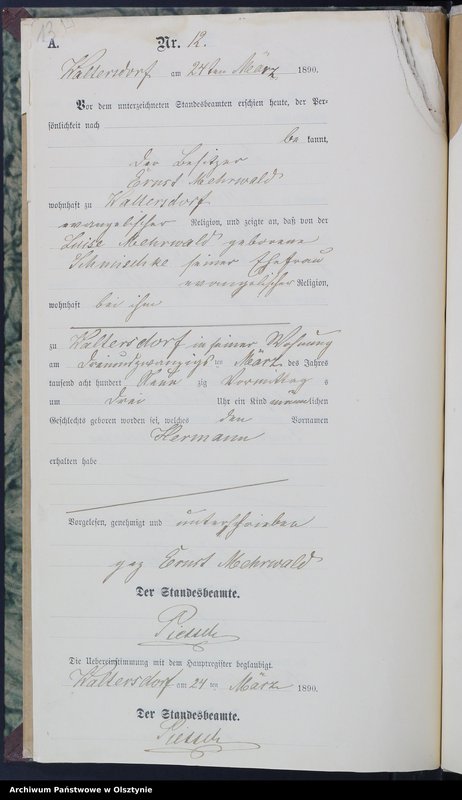 13
A.
Nr. 12.
Waltersdorf am 24ten März 1890.
Vor dem unterzeichneten Standesbeamten erschien heute, der Per-
sönlichkeit nach
be kannt,
der Besitzer
Ernst Mehrwald
wohnhaft zu Waltersdorf
evangelischer Religion, und zeigte an, daß von der
Luise Mehrwald geborene
Schmischke seiner Ehefrau
evangelischer Religion,
wohnhaft bei ihm
zu Waltersdorf in seiner Wohnung
am dreiundzwanzigs ten März des Jahres
tausend acht hundert Neun zig Vormittag s
um drei Uhr ein Kind männlichen
Geschlechts geboren worden sei, welches den Vornamen
Hermann
erhalten habe
Vorgelesen, genehmigt und unterschrieben
gez Ernst Mehrwald
Der Standesbeamte.
Pietsch
Die Uebereinstimmung mit dem Hauptregister beglaubigt.
Waltersdorf am 24 ten März 1890.
Der Standesbeamte.
Pietsch
Archiwum Państwowe w Olsztynie